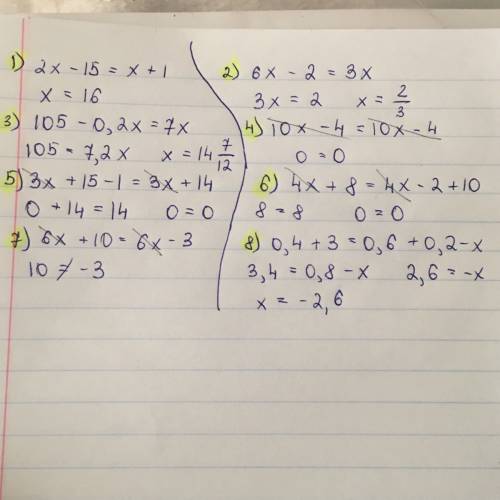 1) 2x - 15 = x + 1
x = 16
2) 6x - 2 = 3x
3x = 2 x = 2/3
3) 105 - 0,2x = 7x
105 = 7,2x x = 14 7/12
4) 10x - 4 = 10x - 4
0 = 0
5) 3x + 15 - 1 = 3x + 14
0 + 14 = 14 0 = 0
6) 4x + 8 = 4x - 2 + 10
8 = 8 0 = 0
7) 6x + 10 = 6x - 3
10 ≠ -3
8) 0,4 + 3 = 0,6 + 0,2 - x
3,4 = 0,8 - x 2,6 = -x
x = -2,6